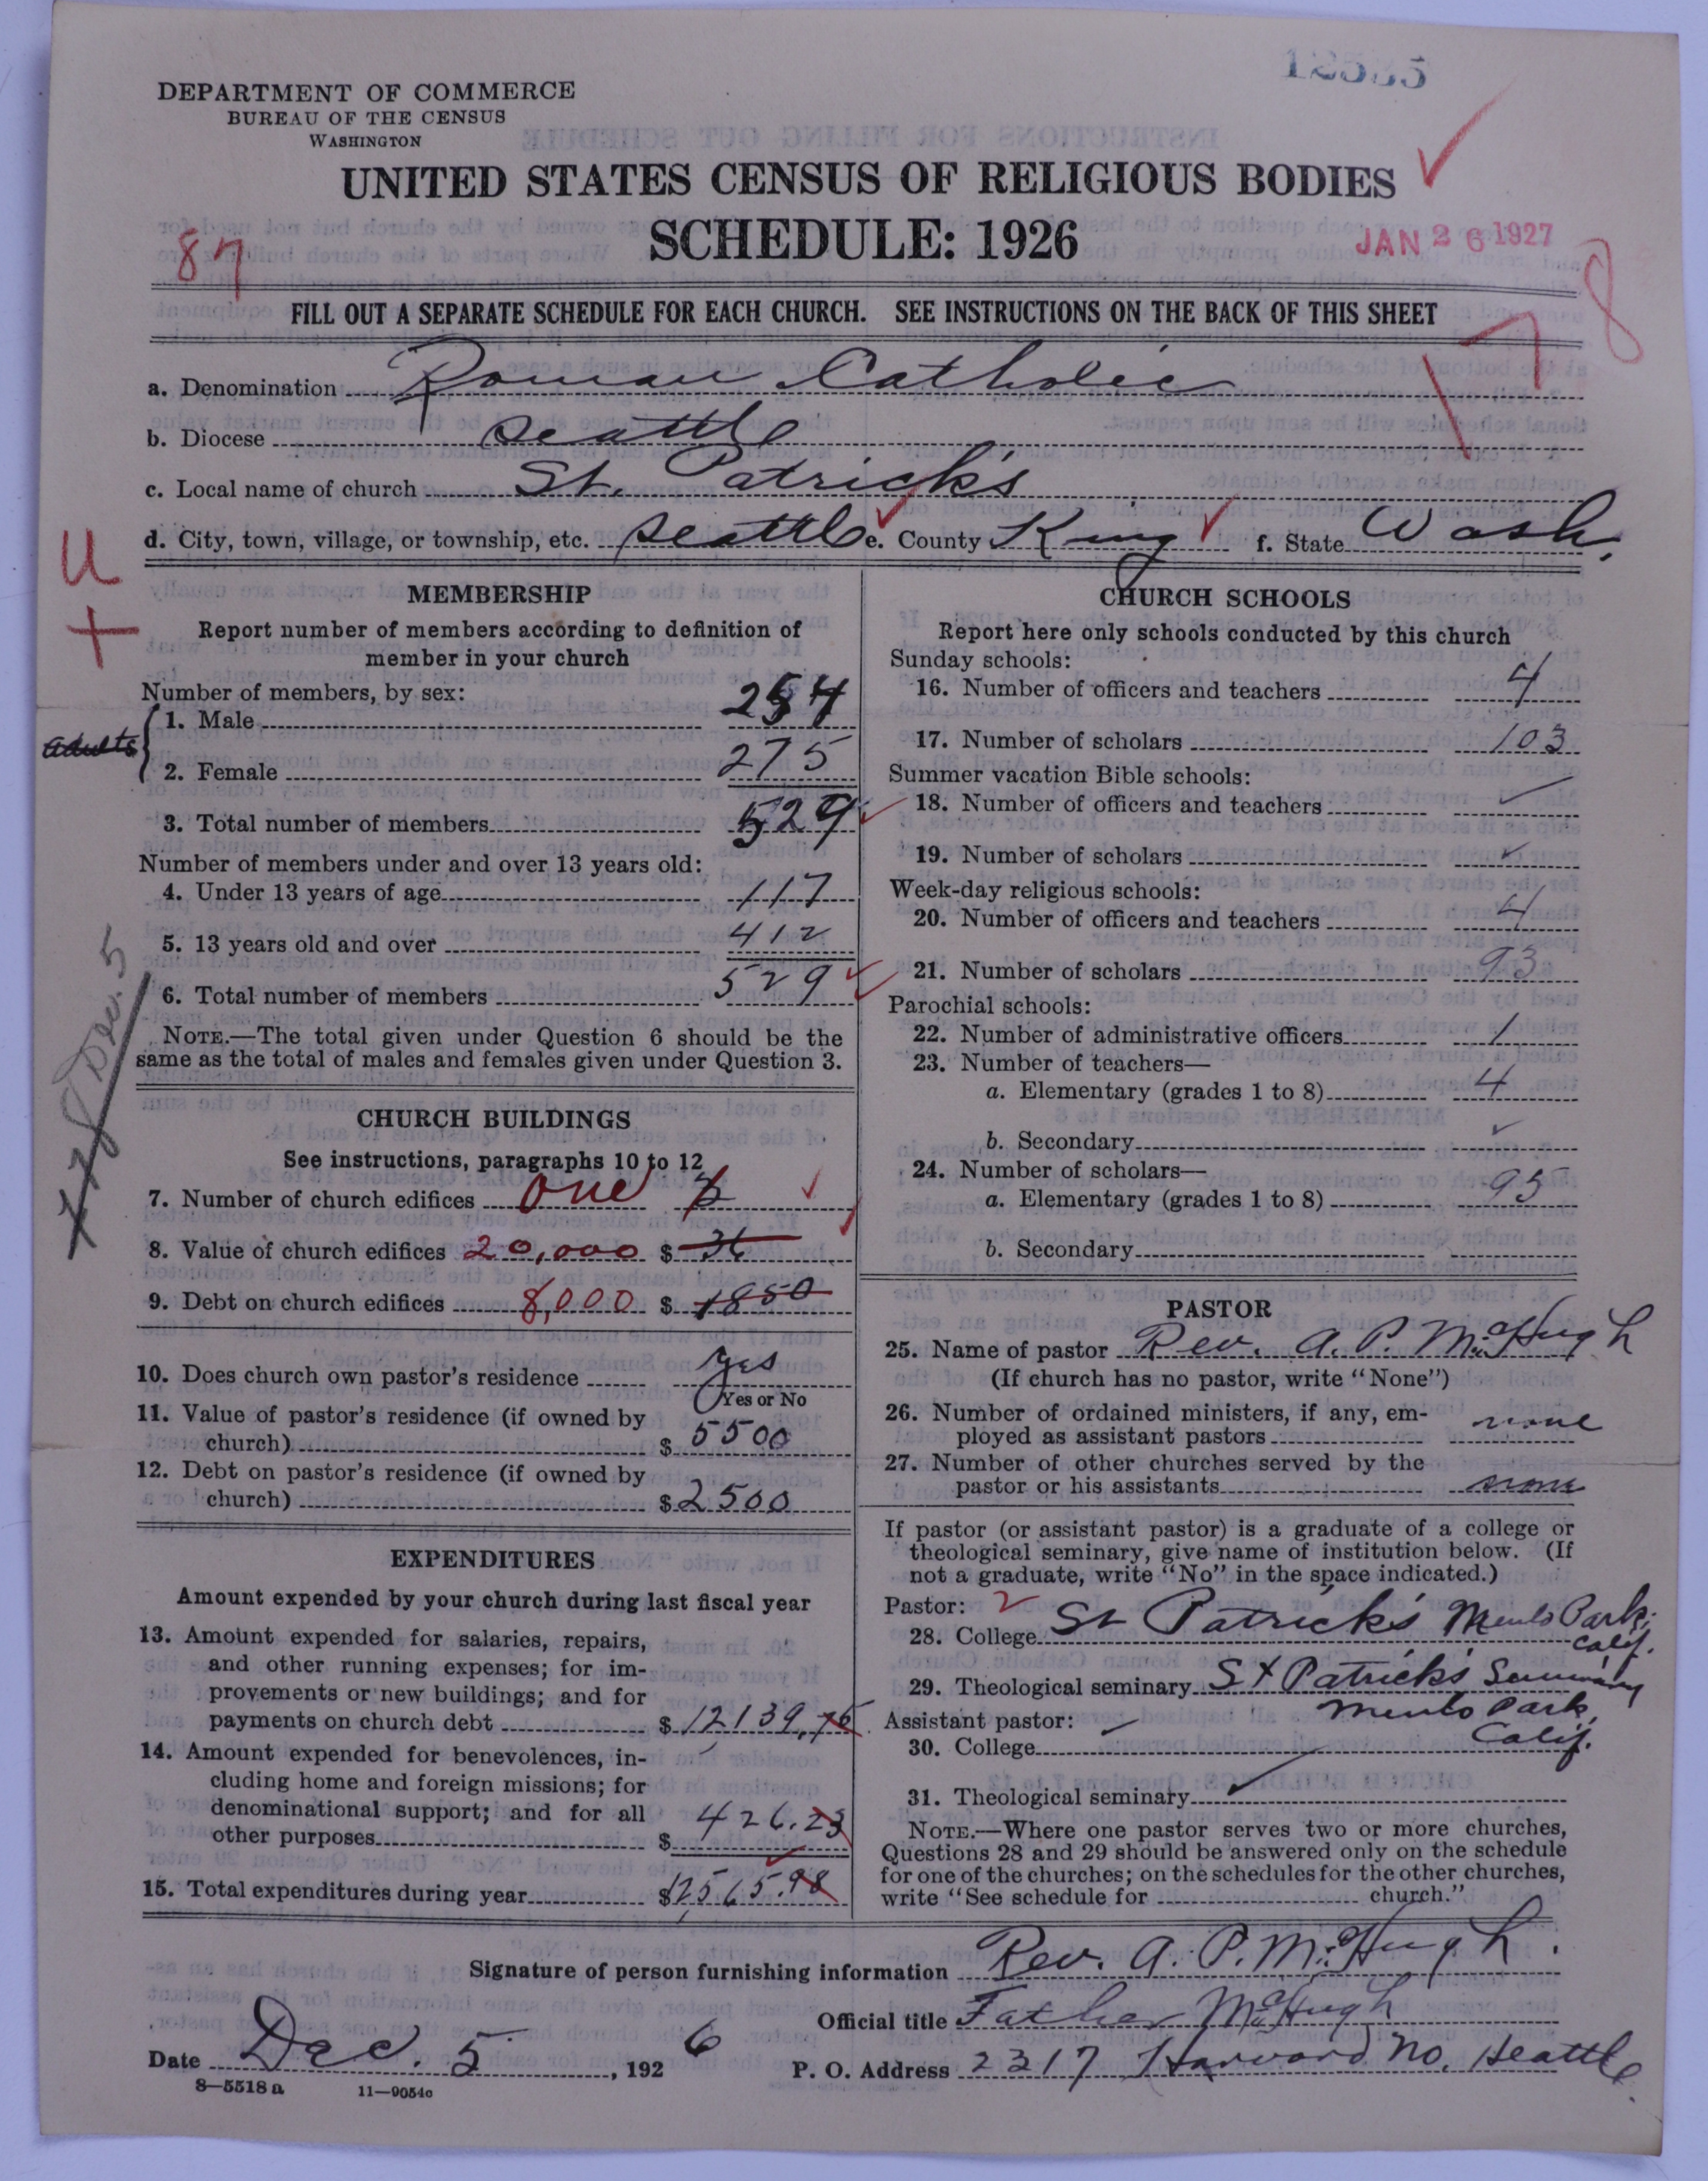 DEPARTMENT OF COMMERCE
BUREAU OF THE CENSUS
WASHINGTON
UNITED STATES CENSUS OF RELIGIOUS BODIES
SCHEDULE: 1926
JAN 26 1927
87
178
FILL OUT A SEPARATE SCHEDULE FOR EACH CHURCH. SEE INSTRUCTIONS ON THE BACK OF THIS SHEET
a. Denomination Roman Catholic
b. Diocese Seattle
c. Local name of church St. Patrick's
d. City, town, village, or township, etc. Seattle e. County King f. State Wash.
U
+
MEMBERSHIP
Report number of members according to definition of
member in your church
Number of members, by sex:
adults
1. Male 254
2. Female 275
3. Total number of members 529
Number of members under and over 13 years old:
4. Under 13 years of age 117
5. 13 years old and over 412
6. Total number of members 529
NOTE.—The total given under Question 6 should be the
same as the total of males and females given under Question 3.
Dec. 5
CHURCH BUILDINGS
See instructions, paragraphs 10 to 12
7. Number of church edifices one
8. Value of church edifices 20,000 $ 36
9. Debt on church edifices 8,000 $ 1850
10. Does church own pastor's residence yes
Yes or No
11. Value of pastor's residence (if owned by
church) $ 5500
12. Debt on pastor's residence (if owned by
church) $ 2500
EXPENDITURES
Amount expended by your church during last fiscal year
13. Amount expended for salaries, repairs,
and other running expenses; for im-
provements or new buildings; and for
payments on church debt $ 12139.75
14. Amount expended for benevolences, in-
cluding home and foreign missions; for
denominational support; and for all
other purposes $ 426.23
15. Total expenditures during year $12,565.98
CHURCH SCHOOLS
Report here only schools conducted by this church
Sunday schools:
16. Number of officers and teachers 4
17. Number of scholars 103
Summer vacation Bible schools:
18. Number of officers and teachers
19. Number of scholars
Week-day religious schools:
20. Number of officers and teachers 4
21. Number of scholars 93
Parochial schools:
22. Number of administrative officers 1
23. Number of teachers—
a. Elementary (grades 1 to 8) 4
b. Secondary
24. Number of scholars—
a. Elementary (grades 1 to 8) 95
b. Secondary
PASTOR
25. Name of pastor Rev. A. P. McHugh
(If church has no pastor, write "None")
26. Number of ordained ministers, if any, em-
ployed as assistant pastors none
27. Number of other churches served by the
pastor or his assistants none
If pastor (or assistant pastor) is a graduate of a college or
theological seminary, give name of institution below. (If
not a graduate, write "No" in the space indicated.)
Pastor:
28. College St Patrick's Menlo Park, Calif.
29. Theological seminary St Patrick's Seminary
Menlo Park,
Calif.
Assistant pastor:
30. College
31. Theological seminary
NOTE.—Where one pastor serves two or more churches,
Questions 28 and 29 should be answered only on the schedule
for one of the churches; on the schedules for the other churches,
write "See schedule for church."
Signature of person furnishing information Rev. A. P. McHugh.
Official title Father McHugh
Date Dec. 5, 1926 P. O. Address 2317 Harvard No. Seattle.
8—5518 a 11—9054c